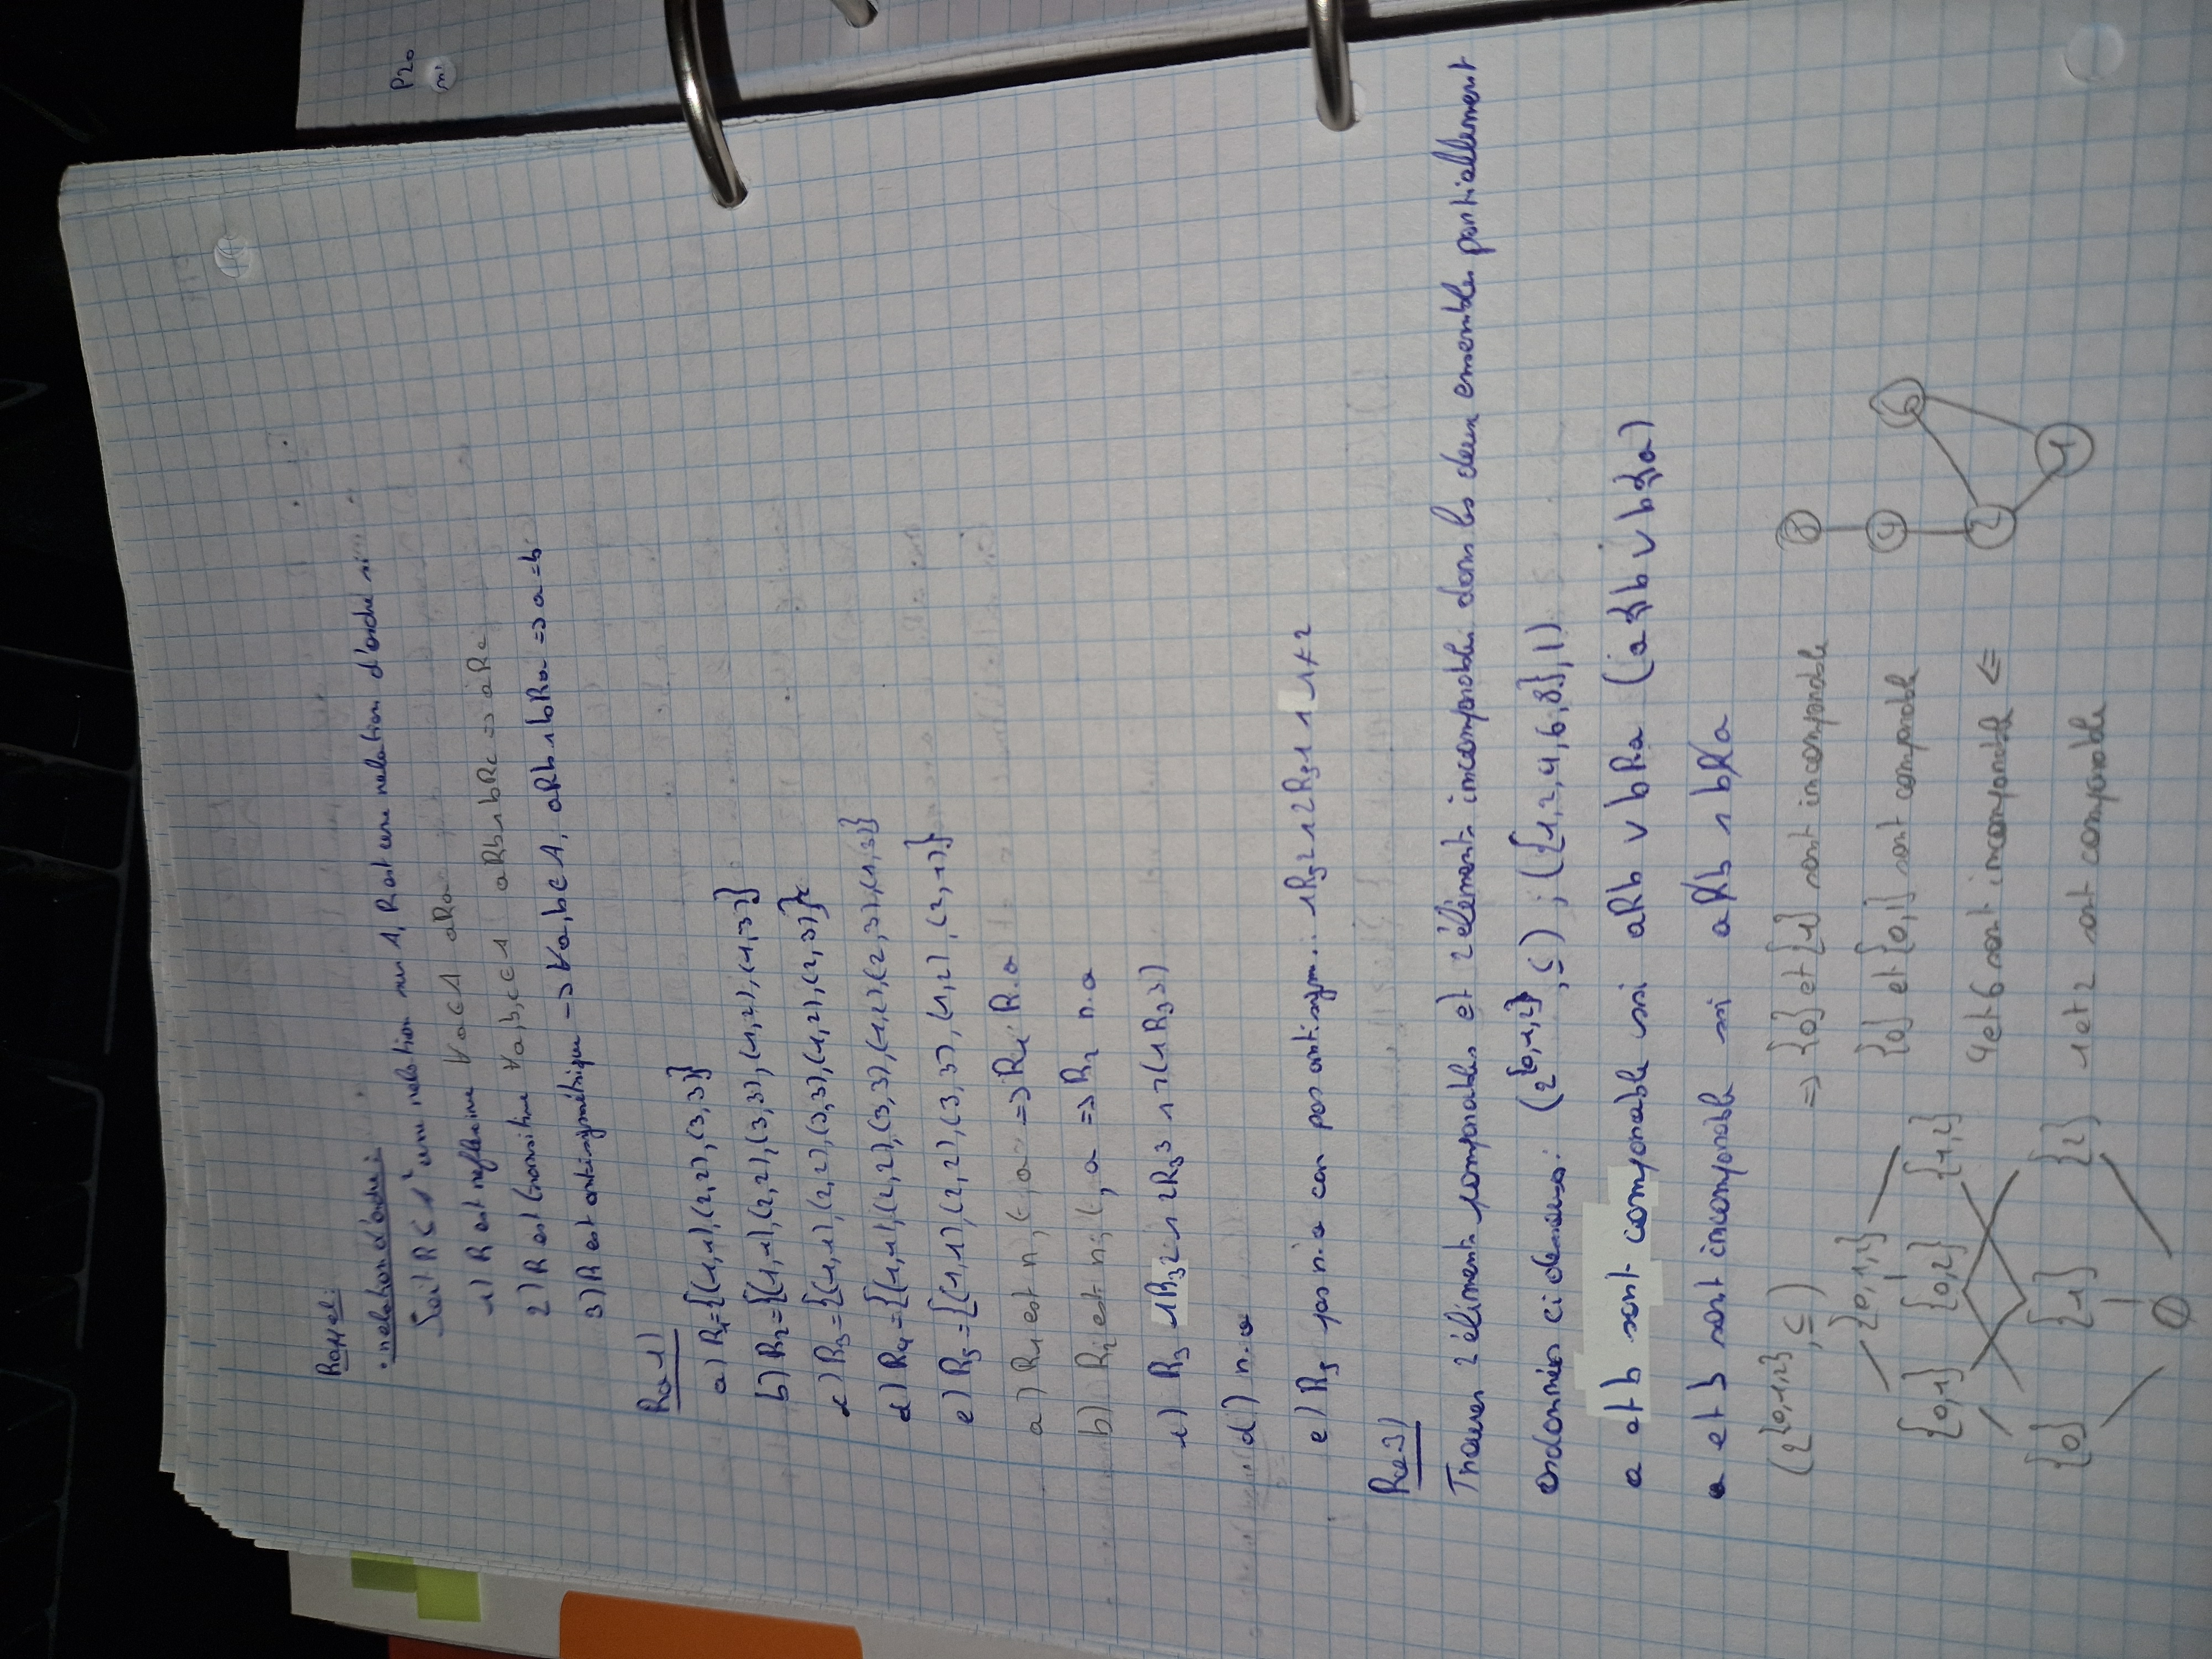 Rappel:
• relation d'ordre:
Soit R ⊆ A² une relation sur A, R est une relation d'ordre si
1) R est reflexive ∀a∈A aRa
2) R est transitive ∀a,b,c∈A aRb ∧ bRc => aRc
3) R est antisymétrique -> ∀a,b∈A, aRb ∧ bRa => a=b
1)
a) R₁={(1,1),(2,2),(3,3)}
b) R₂={(1,1),(2,2),(3,3),(1,2),(1,3)}
c) R₃={(1,1),(2,2),(3,3),(1,2),(2,3)}
d) R₄={(1,1),(2,2),(3,3),(1,2),(2,3),(1,3)}
e) R₅={(1,1),(2,2),(3,3),(1,2),(2,1)}
a) R₁ est r, t, a => R₁ R.o
b) R₂ est r, t, a => R₂ r.o
c) R₃ 1R₃2 ∧ 2R₃3 ∧ ¬(1R₃3)
d) r.o
e) R₅ pas r.o car pas antisym.. 1R₅2 ∧ 2R₅1 ∧ 1≠2
3)
Trouver 2 éléments comparables et 2 éléments incomparables dans les deux ensembles partiellement
ordonnées ci dessous: (2^{0,1,2}, ⊆) ; ({1,2,4,6,8}, |)
a et b sont comparable ssi aRb ∨ bRa (a ≼ b ∨ b ≼ a)
a et b sont incomparable ssi aR̸b ∧ bR̸a
(2^{0,1,2}, ⊆) => {0} et {1} sont incomparable 8
{0,1,2}
{0} et {0,1} sont comparable 4 6
{0,1} {0,2} {1,2}
4 et 6 sont incomparable <= 2
{0} {1} {2} 1 et 2 sont comparable 1
∅
P20